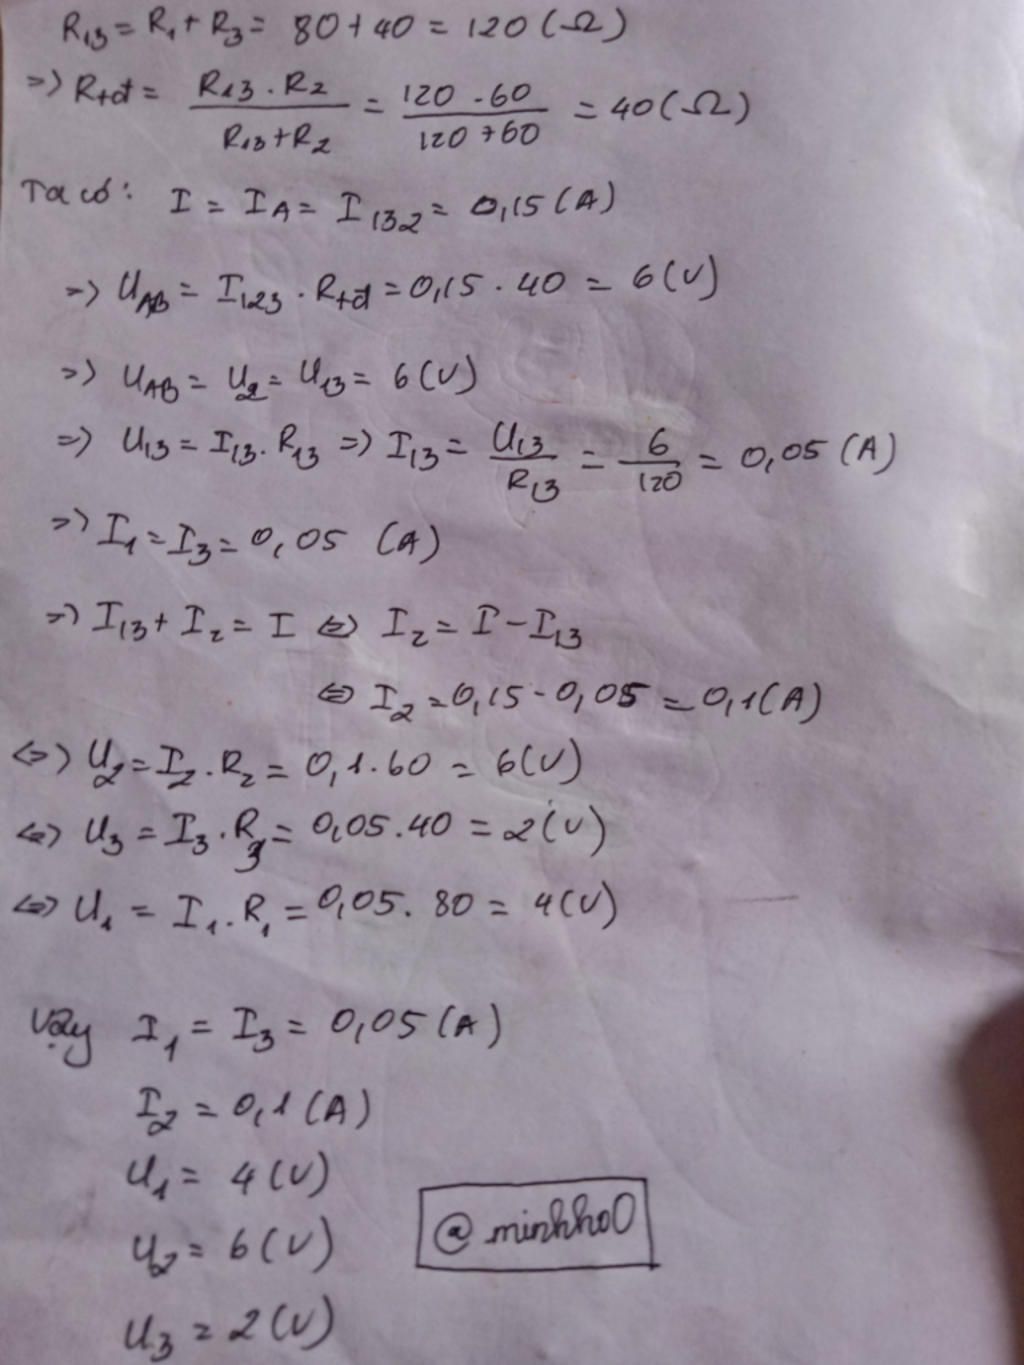 R₁₃ = R₁ + R₃ = 80 + 40 = 120 (Ω)
=> Rtđ = R₁₃ . R₂ / R₁₃ + R₂ = 120 . 60 / 120 + 60 = 40 (Ω)
Ta có: I = I_A = I₁₃₂ = 0,15 (A)
=> U_AB = I₁₂₃ . Rtđ = 0,15 . 40 = 6 (V)
=> U_AB = U₂ = U₁₃ = 6 (V)
=> U₁₃ = I₁₃ . R₁₃ => I₁₃ = U₁₃ / R₁₃ = 6 / 120 = 0,05 (A)
=> I₁ = I₃ = 0,05 (A)
=> I₁₃ + I₂ = I <=> I₂ = I - I₁₃
<=> I₂ = 0,15 - 0,05 = 0,1 (A)
<=> U₂ = I₂ . R₂ = 0,1 . 60 = 6 (V)
<=> U₃ = I₃ . R₃ = 0,05 . 40 = 2 (V)
<=> U₁ = I₁ . R₁ = 0,05 . 80 = 4 (V)
Vậy I₁ = I₃ = 0,05 (A)
I₂ = 0,1 (A)
U₁ = 4 (V)
U₂ = 6 (V)
@minhho0
U₃ = 2 (V)